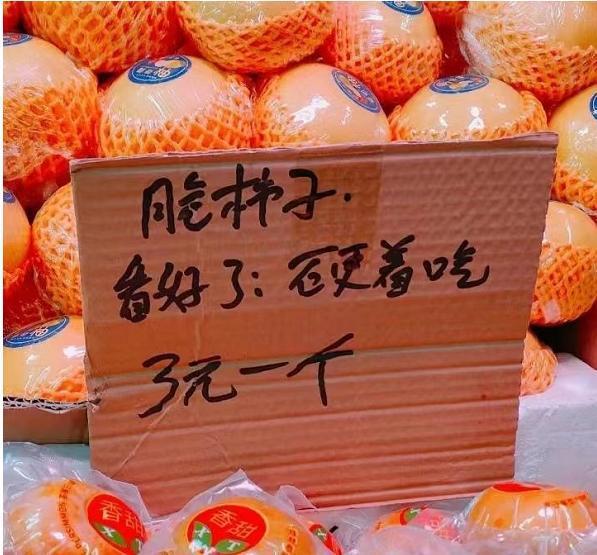 脆柿子.
看好了:硬着吃
3元一个
香甜
香甜
香甜